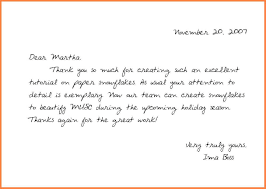 November 20, 2007
Dear Martha,
Thank you so much for creating such an excellent
tutorial on paper snowflakes. As usual your attention to
detail is exemplary. Now our team can create snowflakes
to beautify MUSC during the upcoming holiday season.
Thanks again for the great work!
Very truly yours,
Ima Bess